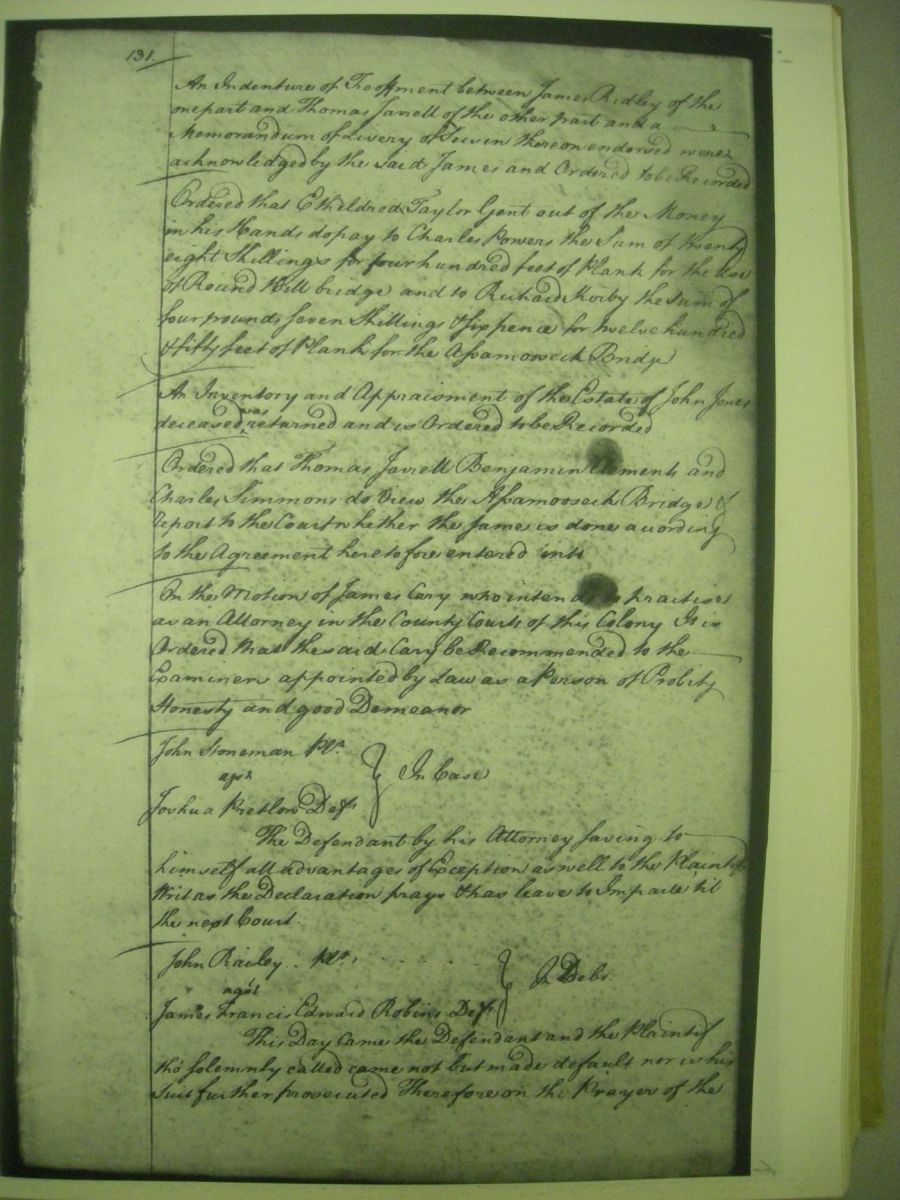 131.
An Indenture of Feoffment between James Ridley of the
one part and Thomas Jarrell of the other part and a
Memorandum of Livery of Seisin thereon endorsed were
acknowledged by the said James and Ordered to be Recorded
Ordered that Etheldred Taylor Gent out of the Money
in his Hands do pay to Charles Powers the Sum of twenty
eight Shillings for four hundred feet of Plank for the use
of Round Hill bridge and to Richard Kirby the Sum of
four pounds seven Shillings & six pence for twelve hundred
& fifty feet of Plank for the Assamooseck Bridge
An Inventory and Appraisment of the Estate of John Jones
deceased was returned and is Ordered to be Recorded
Ordered that Thomas Jarrell Benjamin Clements and
Charles Simmons do View the Assamooseck Bridge &
report to the Court whether the same is done according
to the Agreement heretofore entered into
On the Motion of James Cary who intends to practise
as an Attorney in the County Courts of this Colony It is
Ordered that the said Cary be Recommended to the
Examiners appointed by Law as a Person of Probity
Honesty and good Demeanor
John Stoneman Plt.
agst
Joshua Pretlow Deft
In Case
The Defendant by his Attorney saving to
himself all advantages of Exception as well to the Plaintifs
Writ as the Declaration prays & has leave to Imparle til
the next Court.
John Railey. Plt.
agst
James Francis Edward Robins Deft
In Debt.
This Day came the Defendant and the Plaintif
tho' solemnly called came not but made default nor is his
Suit further prosecuted Therefore on the Prayer of the